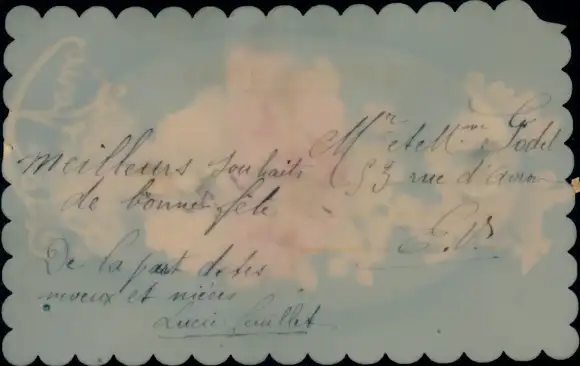 Meilleurs souhaits
de bonne fête
De la part de tes
neveux et nièces
Lucie
Mr et Mme Godel
53 rue d'
E.V.